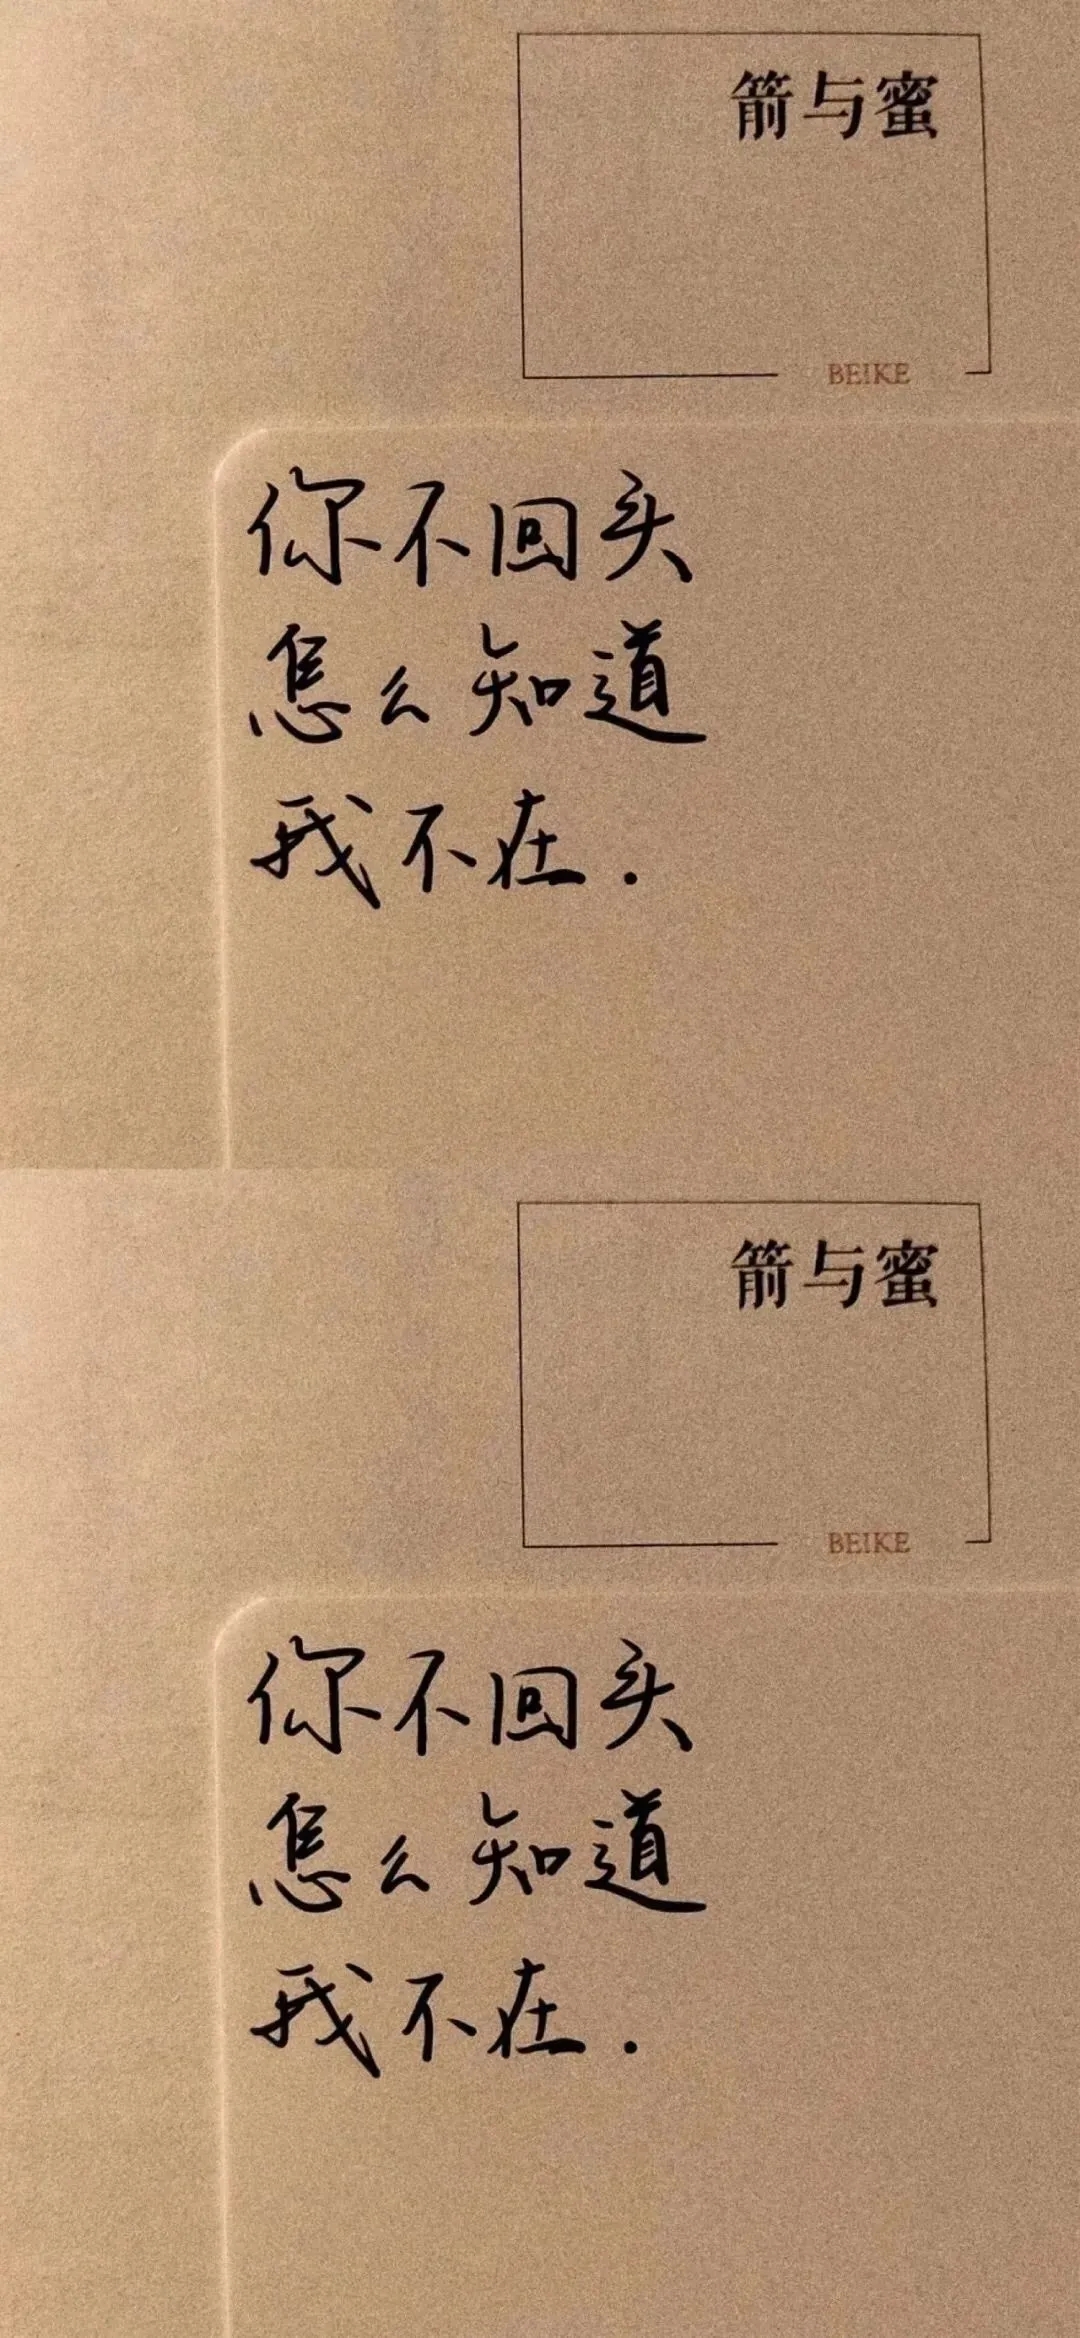 箭与蜜
BEIKE
你不回头
怎么知道
我不在.
箭与蜜
BEIKE
你不回头
怎么知道
我不在.